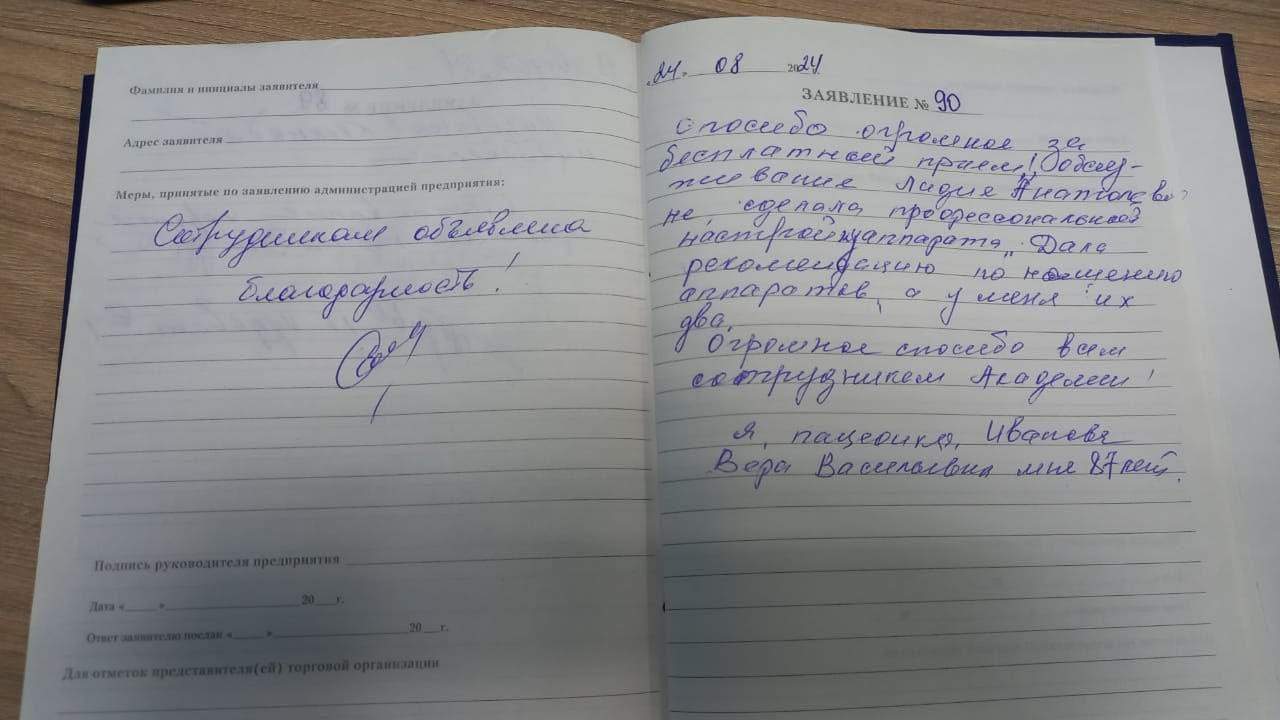 Фамилия и инициалы заявителя
Адрес заявителя
Меры, принятые по заявлению администрацией предприятия:
Сотрудникам объявлена
благодарность!
Подпись руководителя предприятия
Дата «____» ____ 20___г.
Ответ заявителю послан «____» ____ 20___г.
Для отметок представителя(ей) торговой организации
„24" 08 2024
ЗАЯВЛЕНИЕ № 90
Спосибо огромное за
бесплатный прием! Обслу-
живание Лидие Анатолев
не, сделала професcональной
настройку аппарата„ Дала
рекомендацию по ношению
аппаратов, а у меня их
два.
Огромное спосибо всем
сотрудникам Академии!
Я, пациентка, Иванова
Вера Васильевна мне 87 лет.